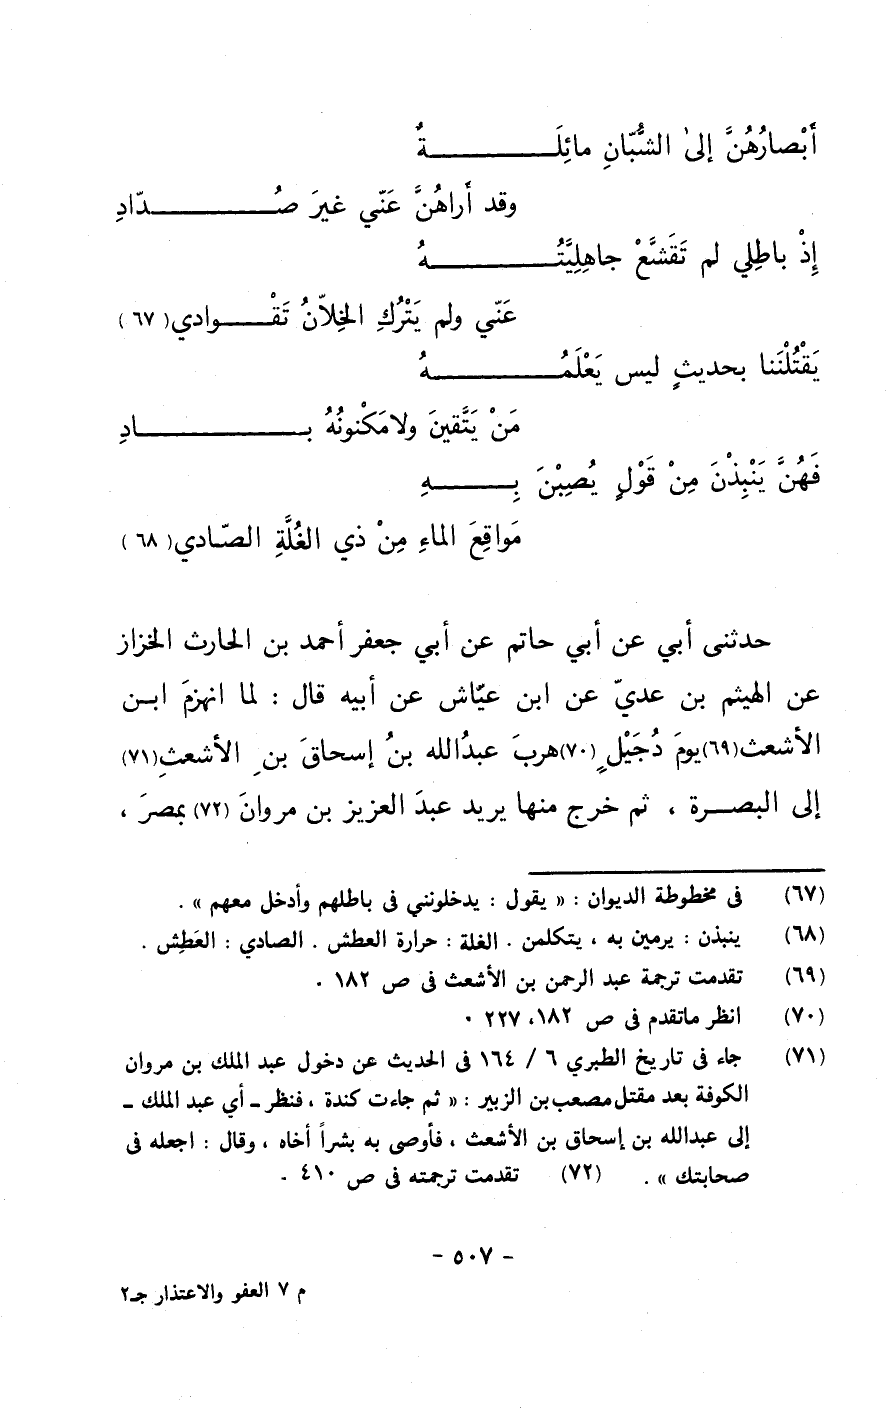 أَبْصارُهُنَّ إلىٰ الشُّبّانِ مائِلَــــــــــةٌ
وقد أَراهُنَّ عَنّي غيرَ صُــــــــدّادِ
إِذْ باطِلي لم تَقَشَّعْ جاهِلِيَّتُــــــــــهُ
عَنّي ولم يَتْرُكِ الخِلاّنُ تَقْــــوادي(٦٧)
يَقْتُلْنَنا بحديثٍ ليس يَعْلَمُــــــــــهُ
مَنْ يَتَّقينَ ولا مَكْنونُهُ بــــــــــادِ
فَهُنَّ يَنْبِذْنَ مِنْ قَوْلٍ يُصِبْنَ بِــــــــهِ
مَواقِعَ الماءِ مِنْ ذي الغُلَّةِ الصّادي(٦٨)
حدثنى أبي عن أبي حاتم عن أبي جعفر أحمد بن الحارث الخزاز
عن الهيثم بن عديّ عن ابن عيّاش عن أبيه قال : لما انهزمَ ابـن
الأشعث(٦٩)يومَ دُجَيْلٍ(٧٠)هربَ عبدُالله بنُ إسحاقَ بنِ الأشعثِ(٧١)
إلى البصــرة ، ثم خرج منها يريد عبدَ العزيز بن مروانَ (٧٢) بمصرَ ،
(٦٧) فى مخطوطة الديوان : « يقول : يدخلونني فى باطلهم وأدخل معهم » .
(٦٨) ينبذن : يرمين به ، يتكلمن . الغلة : حرارة العطش . الصادي : العَطِش .
(٦٩) تقدمت ترجمة عبد الرحمن بن الأشعث فى ص ١٨٢ .
(٧٠) انظر ماتقدم فى ص ١٨٢، ٢٢٧ .
(٧١) جاء فى تاريخ الطبري ٦ / ١٦٤ فى الحديث عن دخول عبد الملك بن مروان
الكوفة بعد مقتل مصعب بن الزبير : « ثم جاءت كندة ، فنظر ـ أي عبد الملك ـ
إلى عبدالله بن إسحاق بن الأشعث ، فأوصى به بشراً أخاه ، وقال : اجعله فى
صحابتك » . (٧٢) تقدمت ترجمته فى ص ٤١٠ .
- ٥٠٧ -
م ٧ العفو والاعتذار جـ٢